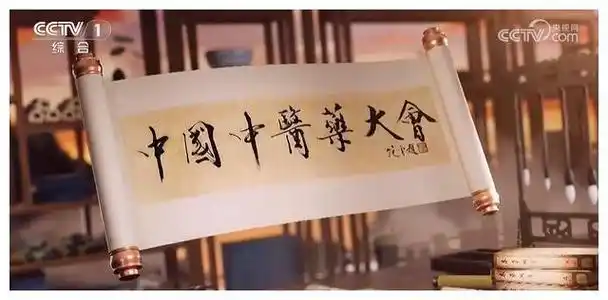 CCTV 1
综合
CCTV 央视网
com
中國中醫藥大會